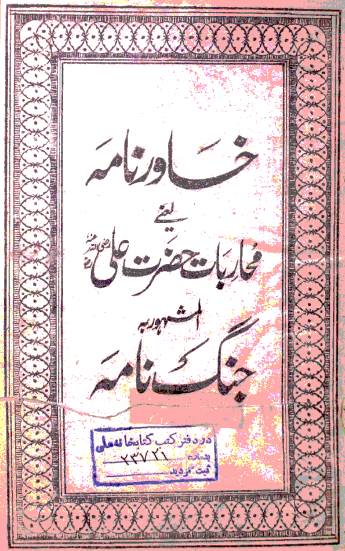 خاورنامہ
یعنے
محاربات حضرت علی رضی اللہ عنہ
المشہور بہ
جنگ نامہ
در دفتر کتب کتابخانه ملی
بشماره ۲۳۷۲۱
ثبت گردید